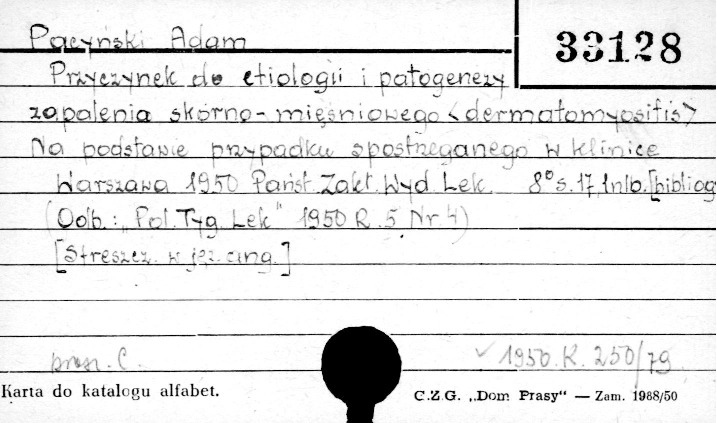 Pacyński Adam
33128
Przyczynek do etiologii i patogenezy
zapalenia skórno-mięśniowego <dermatomyositis>
Na podstawie przypadku spostrzeganego w klinice
Warszawa 1950 Państ. Zakł. Wyd. Lek. 8° s. 17, 1nlb. [bibliog
(Odb.: „Pol. Tyg. Lek" 1950 R. 5 Nr. 4)
[Streszcz. w jęz. ang.]
brosz. C. ✓ 1950. K. 250/79
Karta do katalogu alfabet.
C.Z.G. „Dom Prasy“ — Zam. 1988/50